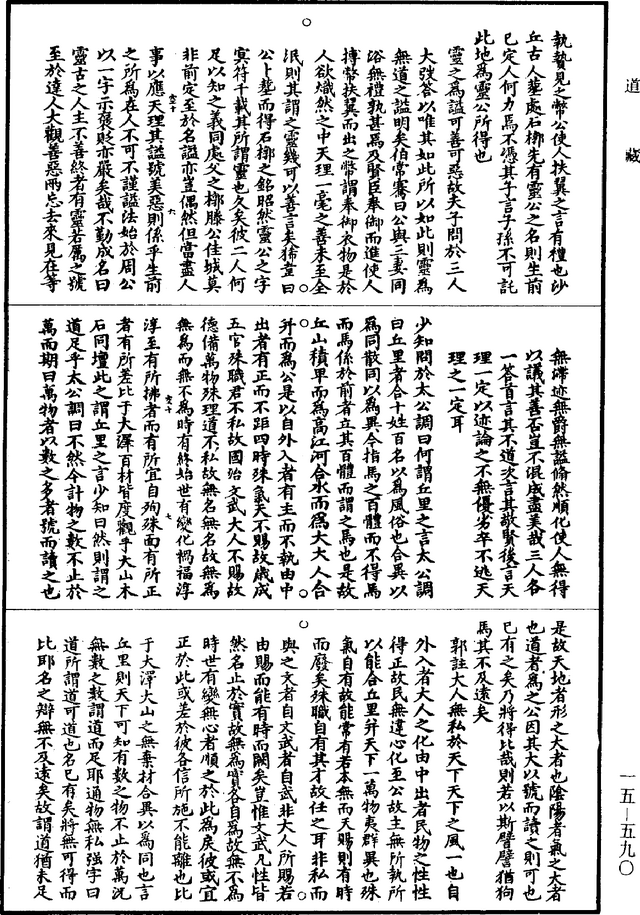 道藏
執贄見之幣公使人扶翼之言有禮也沙
丘古人塟處石槨先有靈公之名則生前
已定人何力焉不憑其子言子孫不可託
此地為靈公所得也
靈之為謚可善可惡故夫子問於三人
大弢答以唯其如此所以如此則靈為
無道之謚明矣伯常騫曰公與三妻同
浴無禮孰甚焉及賢臣奉御而進使人
搏幣扶翼而出之幣謂奉御衣物是於
人欲熾然之中天理一毫之善未至全
泯則其謂之靈幾可以善言矣狶韋曰
公卜塟而得石槨之銘昭然靈公之字
冥符千載其所謂靈也久矣彼二人何
足以知之義同處父之槨滕公佳城莫
非前定至於名謚亦豈偶然但當盡人
事以應天理其謚號美惡則係乎生前
之所為在人不可不謹謚法始於周公
以一字示褒貶亦嚴矣哉不勤成名曰
靈古之人主不善終者有靈若厲之號
至於達人大觀善惡兩忘去來見在等
無滯迹無爵無謚翛然順化使人無得
以議其善否豈不混成盡美哉三人各
一答首言其不道次言其敬賢後言天
理一定以迹論之不無優劣卒不逃天
理之一定耳
少知問於太公調曰何謂丘里之言太公調
曰丘里者合十姓百名以為風俗也合異以
為同散同以為異今指馬之百體而不得馬
而馬係於前者立其百體而謂之馬也是故
丘山積卑而為高江河合水而為大大人合
并而為公是以自外入者有主而不執由中
出者有正而不距四時殊氣天不賜故歲成
五官殊職君不私故國治文武大人不賜故
德備萬物殊理道不私故無名無名故無為
無為而無不為時有終始世有變化禍福淳
淳至有所拂者而有所宜自殉殊面有所正
者有所差比于大澤百材皆度觀乎大山木
石同壇此之謂丘里之言少知曰然則謂之
道足乎太公調曰不然今計物之數不止於
萬而期曰萬物者以數之多者號而讀之也
是故天地者形之大者也陰陽者氣之大者
也道者為之公因其大以號而讀之則可也
已有之矣乃將得比哉則若以斯譬譬猶狗
馬其不及遠矣
郭註大人無私於天下天下之風一也自
外入者大人之化由中出者民物之性性
得正故民無違心化至公故主無所執所
以能合丘里并天下一萬物夷群異也殊
氣自有故能常有若本無而天賜則有時
而廢矣殊職自有其才故任之耳非私而
與之文者自文武者自武非大人所賜若
由賜而能有時而闕矣豈惟文武凡性皆
然名止於實故無為實各自為故無不為
時世有變無心者順之於此為戾彼或宜
正於此或差於彼各信所施不能離也比
于大澤大山之無棄材合異以為同也言
丘里則天下可知有數之物不止於萬況
無數之數謂道而足耶通物無私強字曰
道所謂道可道也名已有矣將無可得而
比耶名之辯無不及遠矣故謂道猶未足
一五—五九〇